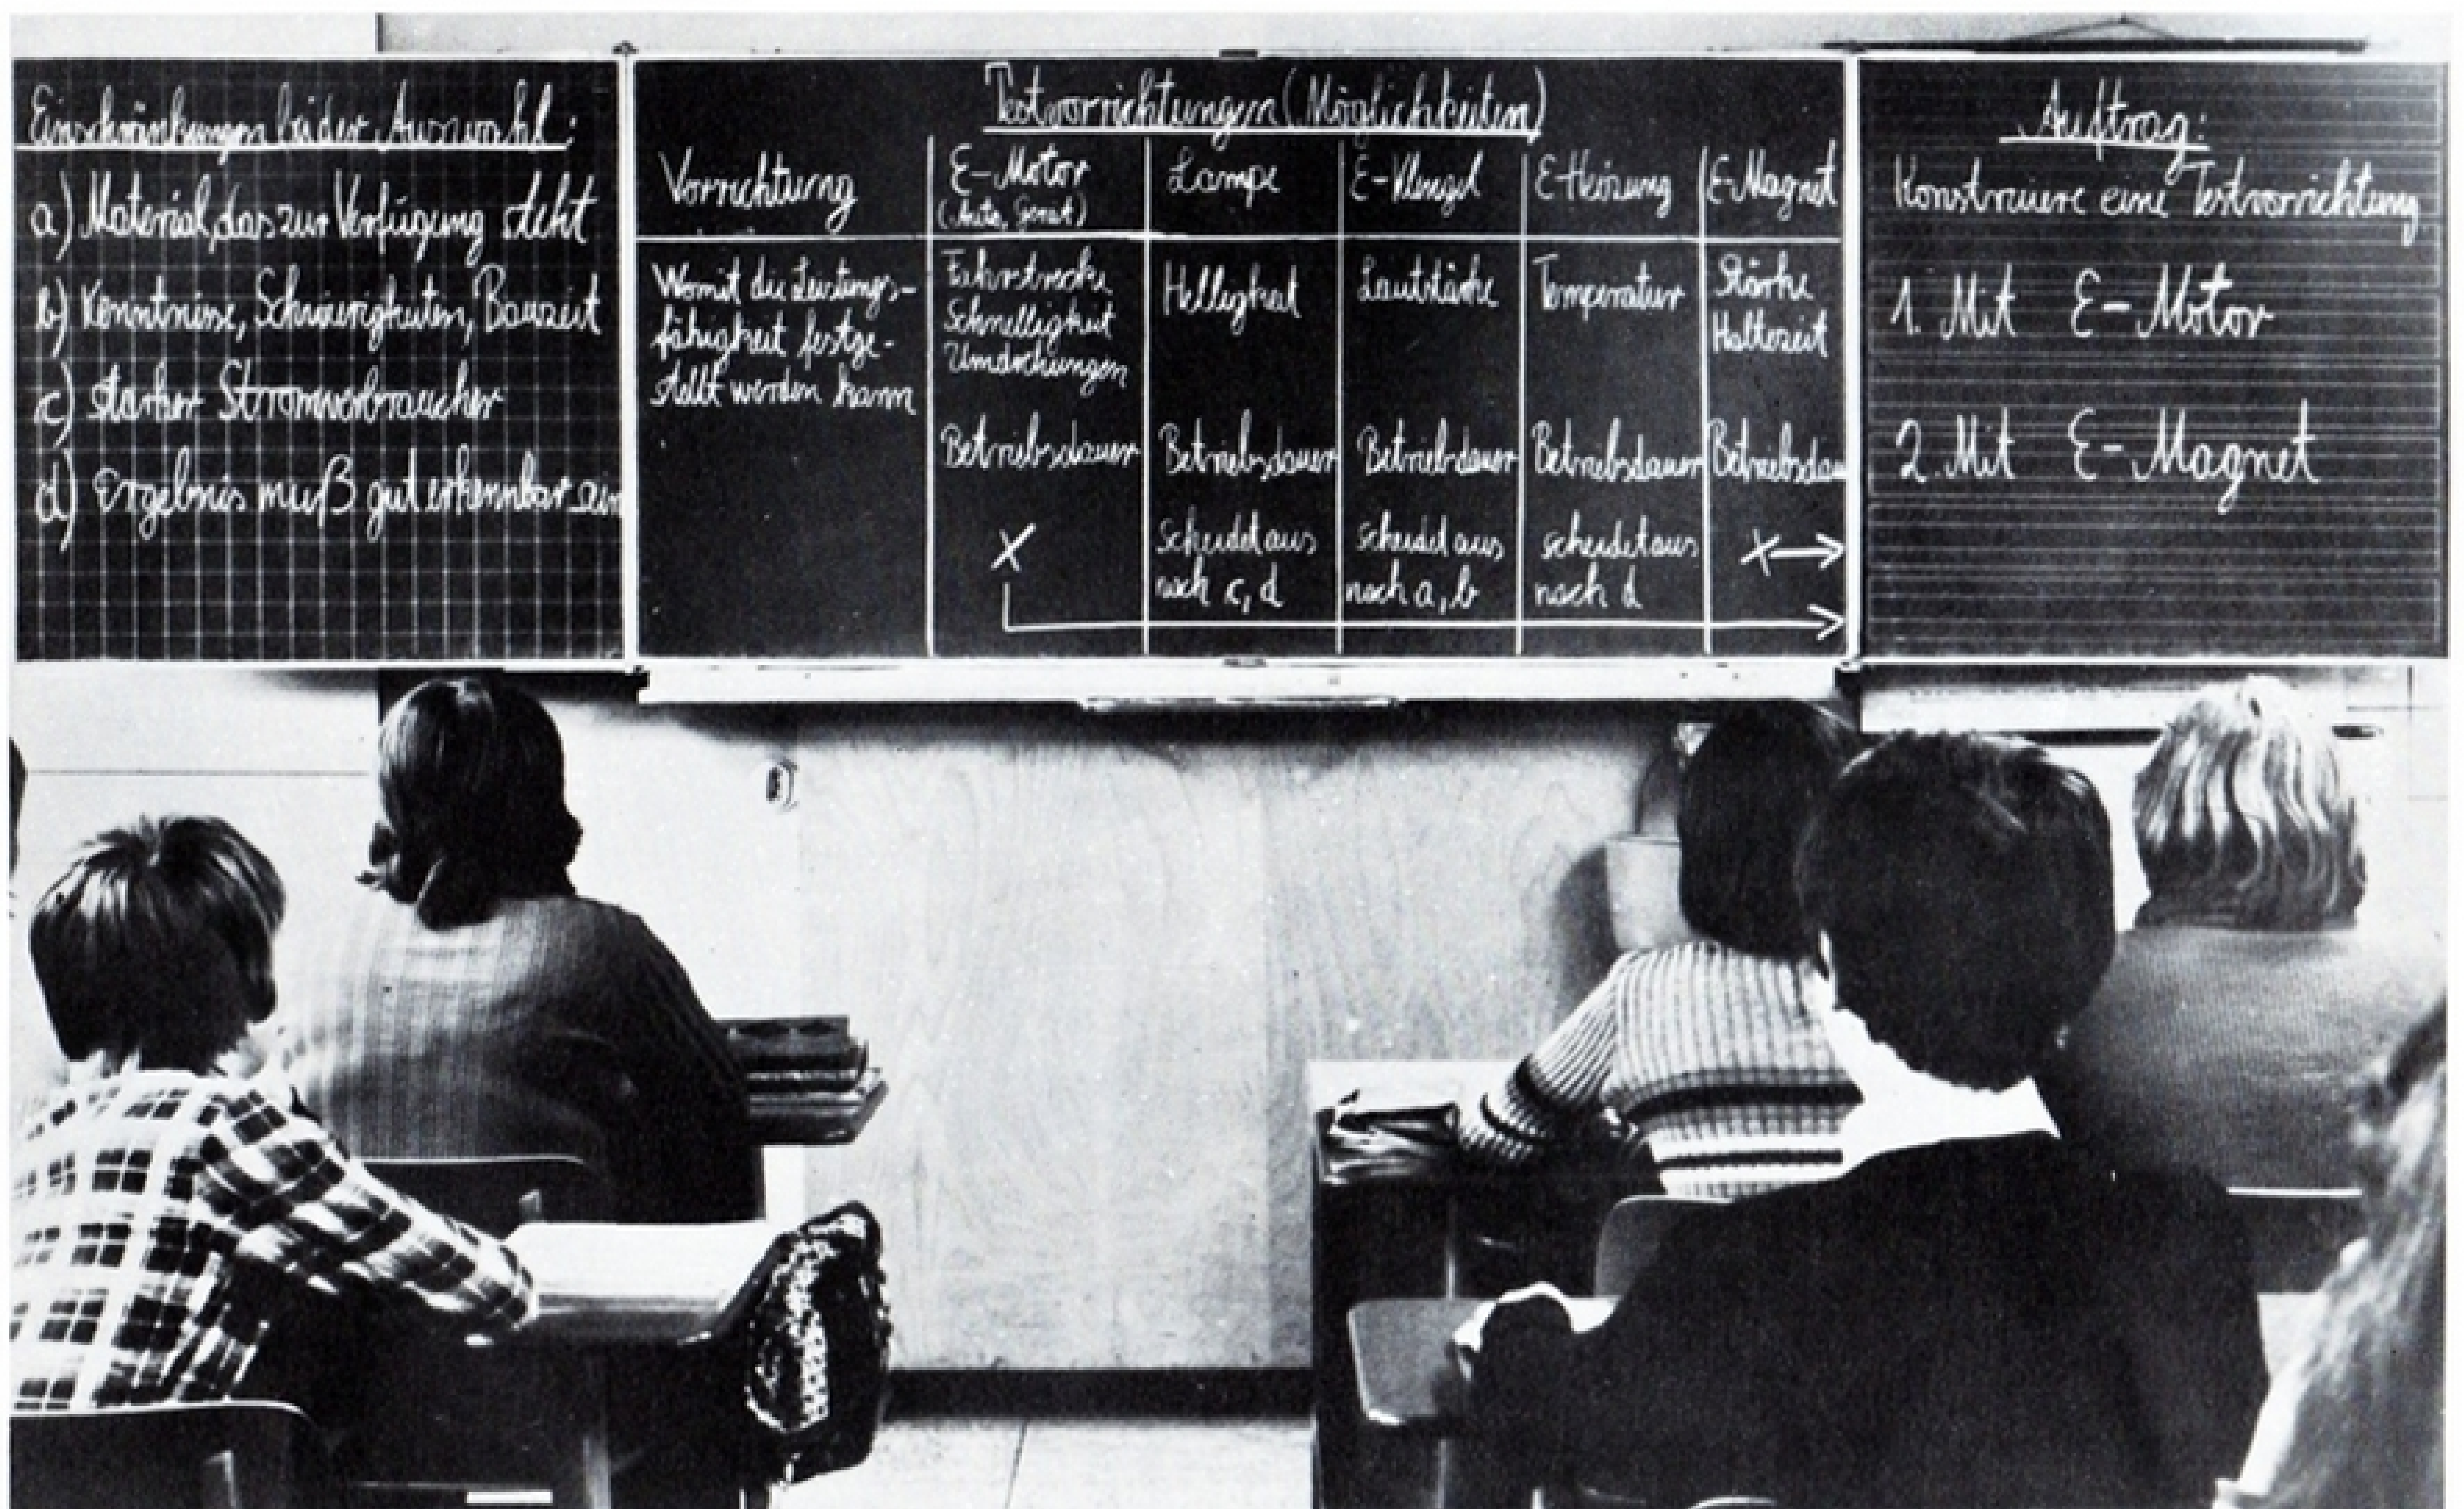 Einschränkungen bei der Auswahl:
a) Material, das zur Verfügung steht
b) Kenntnisse, Schwierigkeiten, Bauzeit
c) starker Stromverbraucher
d) Ergebnis muß gut erkennbar sein
Testvorrichtungen (Möglichkeiten)
Vorrichtung
E-Motor
(Auto, Gerät)
Lampe
E-Klingel
E-Heizung
E-Magnet
Womit die Leistungs-
fähigkeit festge-
stellt werden kann
Fahrstrecke
Schnelligkeit
Umdrehungen
Helligkeit
Lautstärke
Temperatur
Stärke
Haltezeit
Betriebsdauer
Betriebsdauer
Betriebsdauer
Betriebsdauer
Betriebsdau
X
scheidet aus
nach c, d
scheidet aus
nach a, b
scheidet aus
nach d
X →
Auftrag:
Konstruiere eine Testvorrichtung
1. Mit E-Motor
2. Mit E-Magnet